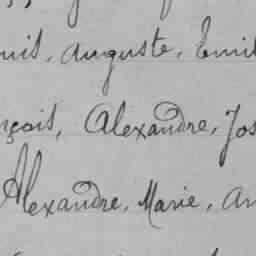 Auguste, Emil
nçois, Alexandre, Jos
Alexandre, Marie, An